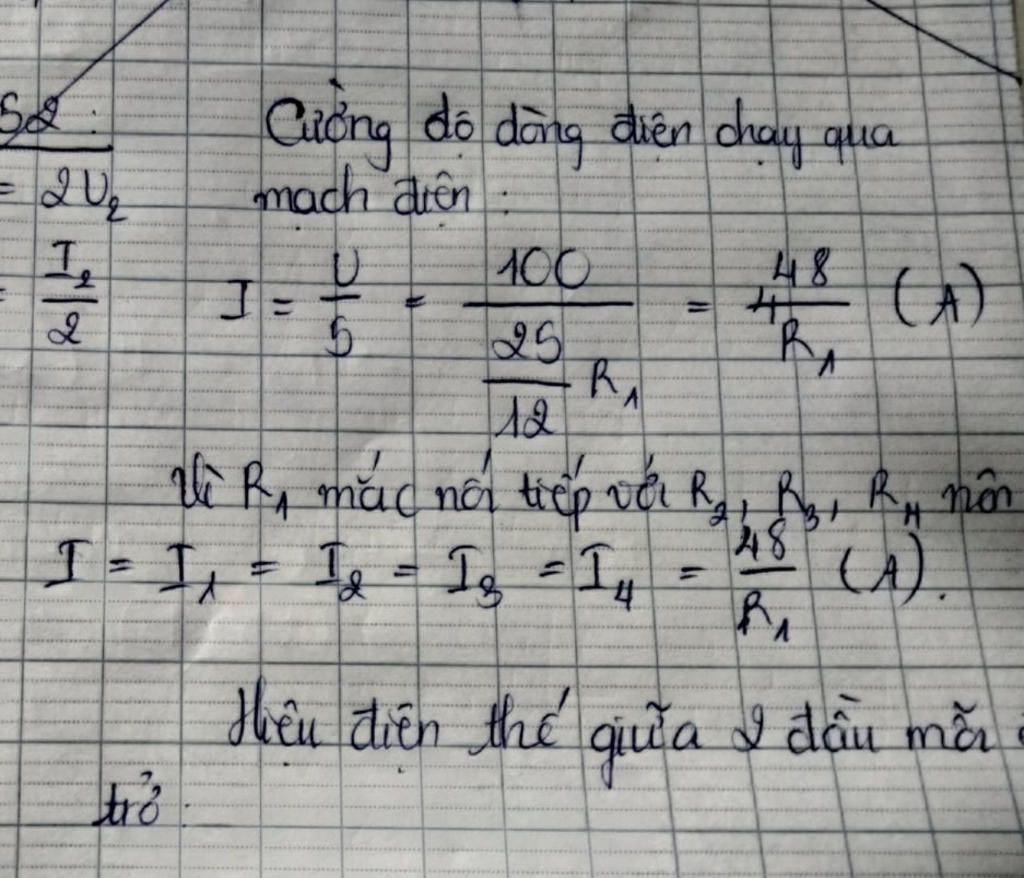 52:
= 2U₂
I₂/2
Cường độ dòng điện chạy qua
mạch điện:
I = U/5 = 100/(25/12 R₁) = 48/R₁ (A)
Vì R₁ mắc nối tiếp với R₂, R₃, R₄ nên
I = I₁ = I₂ = I₃ = I₄ = 48/R₁ (A).
Hiệu điện thế giữa 2 đầu mỗi
trở: